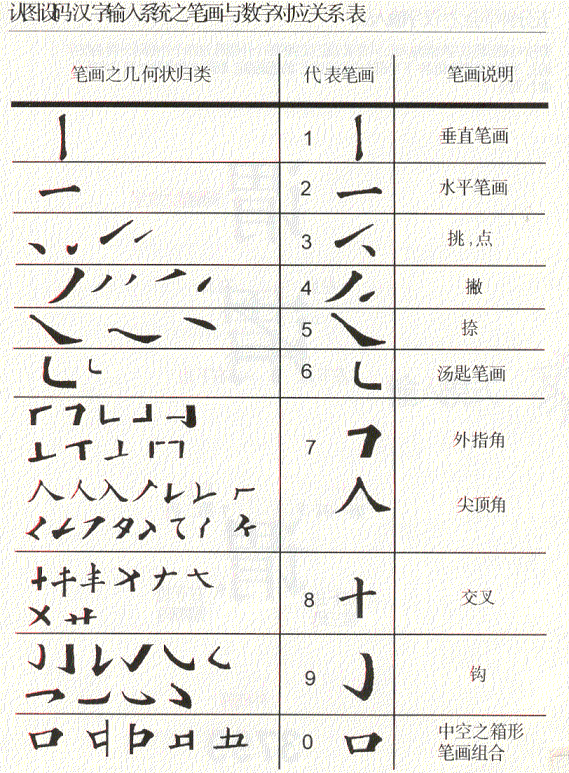 认图设码汉字输入系统之笔画与数字对应关系表
笔画之几何状归类 代表笔画 笔画说明
1 垂直笔画
2 水平笔画
3 挑,点
4 撇
5 捺
6 汤匙笔画
7 外指角
尖顶角
8 交叉
9 钩
0 中空之箱形
笔画组合